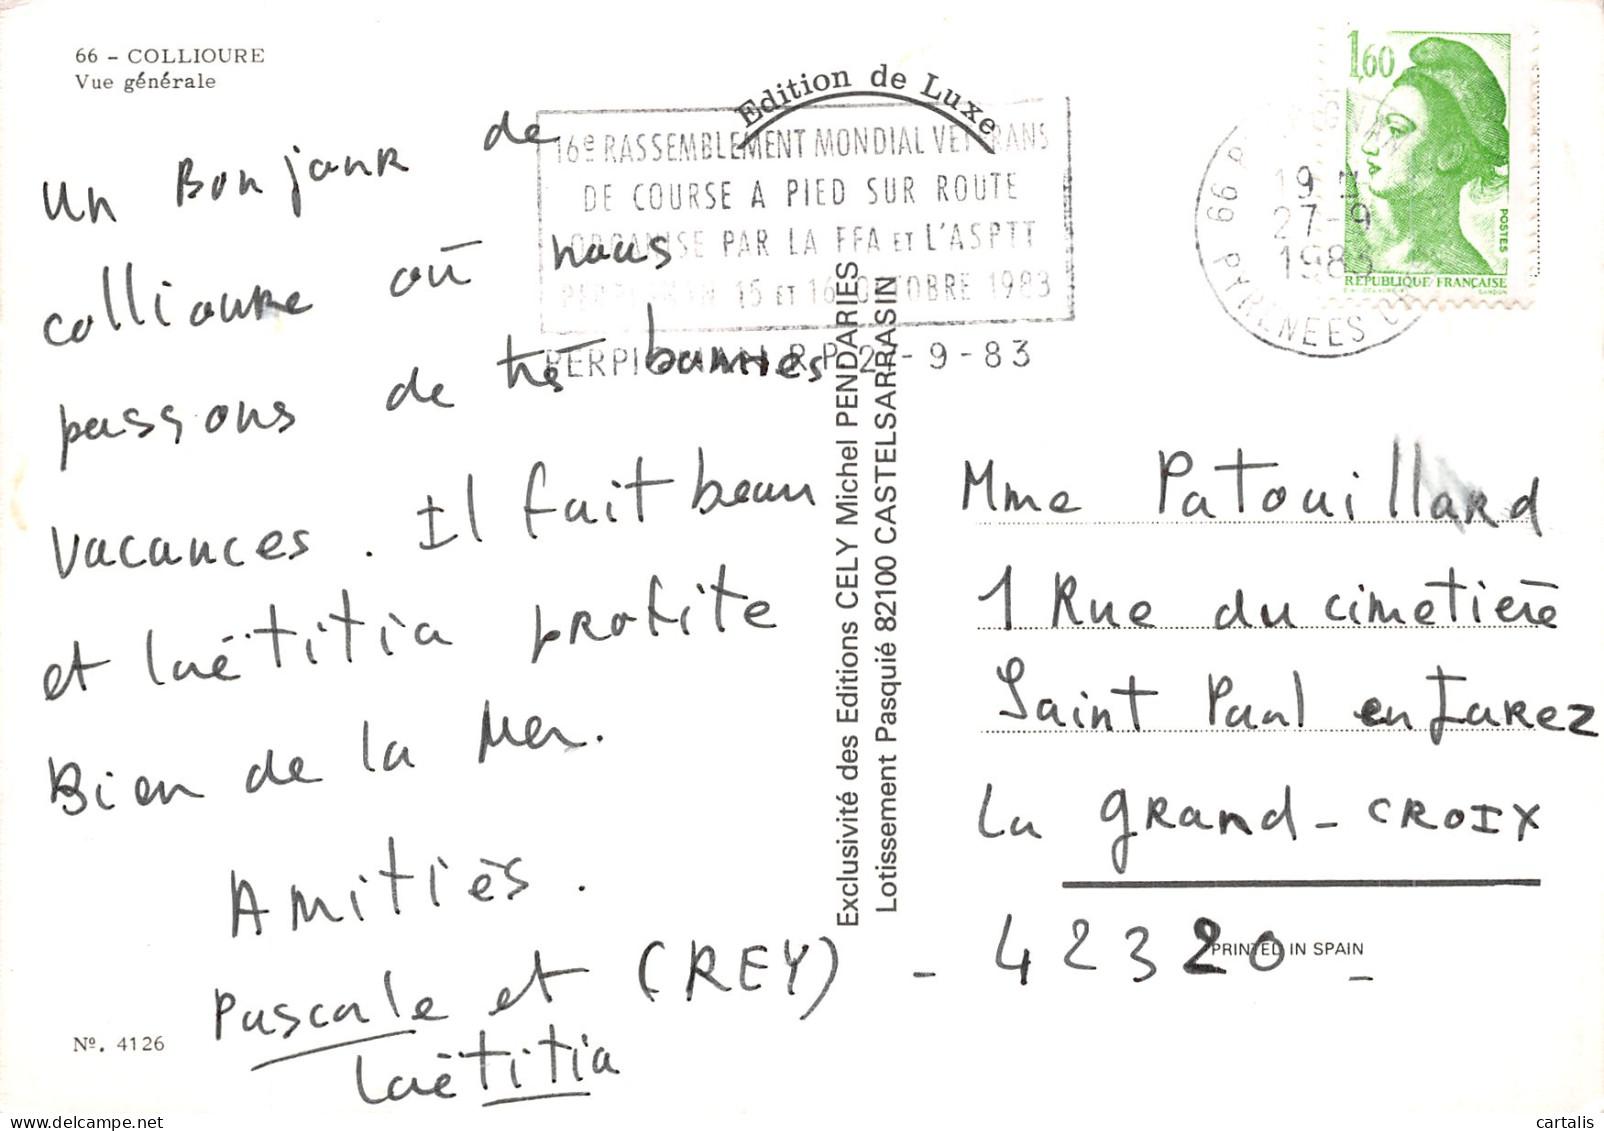 66 - COLLIOURE
Vue générale
Edition de Luxe
16e RASSEMBLEMENT MONDIAL VETERANS
DE COURSE A PIED SUR ROUTE
ORGANISE PAR LA FFA ET L'ASPTT
PERPIGNAN 15 ET 16 OCTOBRE 1983
PERPIGNAN R.P. 27-9-83
1,60
POSTES
RÉPUBLIQUE FRANÇAISE
66 PERPIGNAN
19 H
27-9
1983
PYRENEES OR
Un Bonjour de
collioure où nous
passons de très bonnes
vacances. Il fait beau
et laëtitia profite
Bien de la Mer.
Amitiés.
Pascale et (REY)
laëtitia
Nº. 4126
Exclusivité des Editions CELY Michel PENDARIES
Lotissement Pasquié 82100 CASTELSARRASIN
Mme Patouillard
1 Rue du cimetière
Saint Paul en Jarez
La grand-CROIX
- 42320 -
PRINTED IN SPAIN
cartalis
delcampe.net